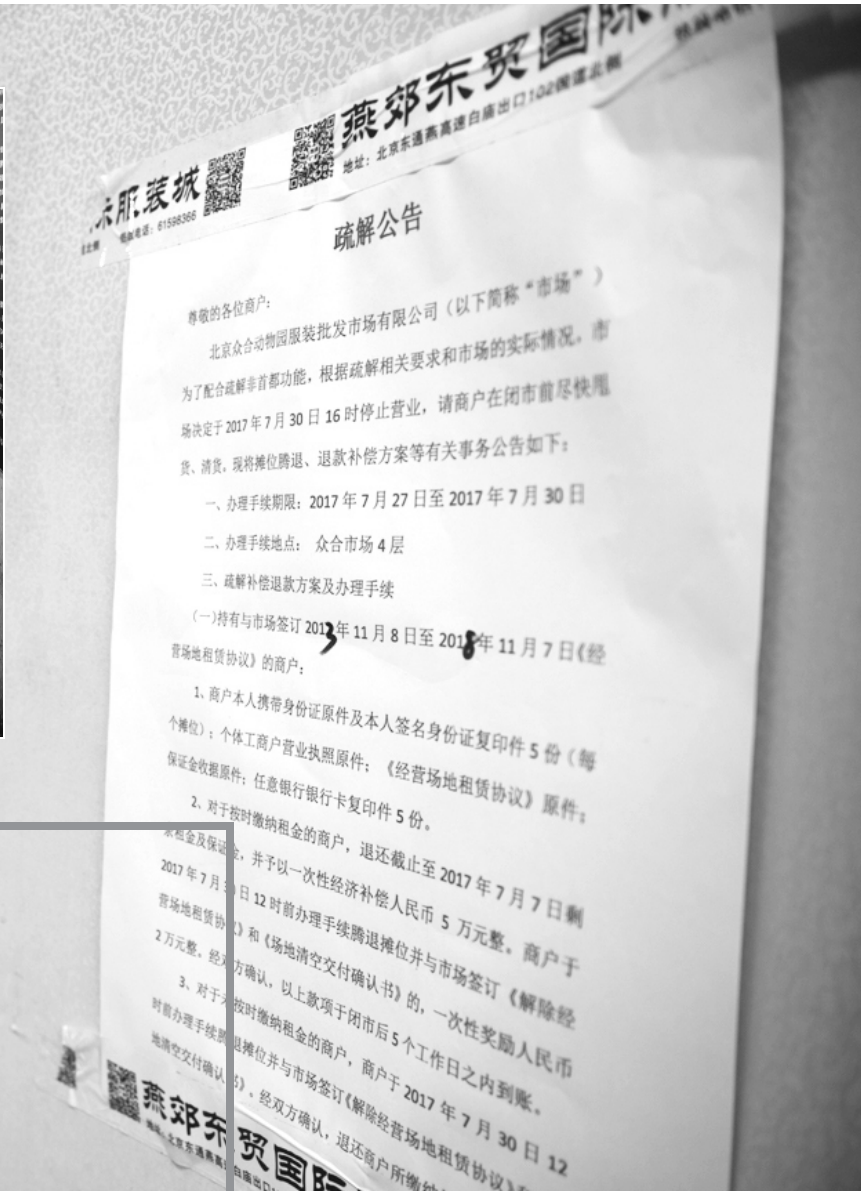 燕郊东贸国际
地址：北京东通燕高速白庙出口102国道北侧
服装城
电话：61598366
疏解公告
尊敬的各位商户：
北京众合动物园服装批发市场有限公司（以下简称“市场”）
为了配合疏解非首都功能，根据疏解相关要求和市场的实际情况，市
场决定于2017年7月30日16时停止营业，请商户在闭市前尽快甩
货、清货。现将摊位腾退、退款补偿方案等有关事务公告如下：
一、办理手续期限：2017年7月27日至2017年7月30日
二、办理手续地点： 众合市场4层
三、疏解补偿退款方案及办理手续
（一)持有与市场签订2013年11月8日至2018年11月7日《经
营场地租赁协议》的商户：
1、商户本人携带身份证原件及本人签名身份证复印件5份（每
个摊位）；个体工商户营业执照原件；《经营场地租赁协议》原件；
保证金收据原件；任意银行银行卡复印件5份。
2、对于按时缴纳租金的商户，退还截止至2017年7月7日剩
租金及保证金，并予以一次性经济补偿人民币 5 万元整。商户于
2017年7月 日12时前办理手续腾退摊位并与市场签订《解除经
营场地租赁协议》和《场地清空交付确认书》的，一次性奖励人民币
2万元整。经双方确认，以上款项于闭市后5个工作日之内到账。
3、对于未按时缴纳租金的商户，商户于2017年7月30日12
时前办理手续腾退摊位并与市场签订《解除经营场地租赁协议》
地清空交付确认书》。经双方确认，退还商户所缴纳
燕郊东贸国际
地址：北京东通燕高速白庙出口